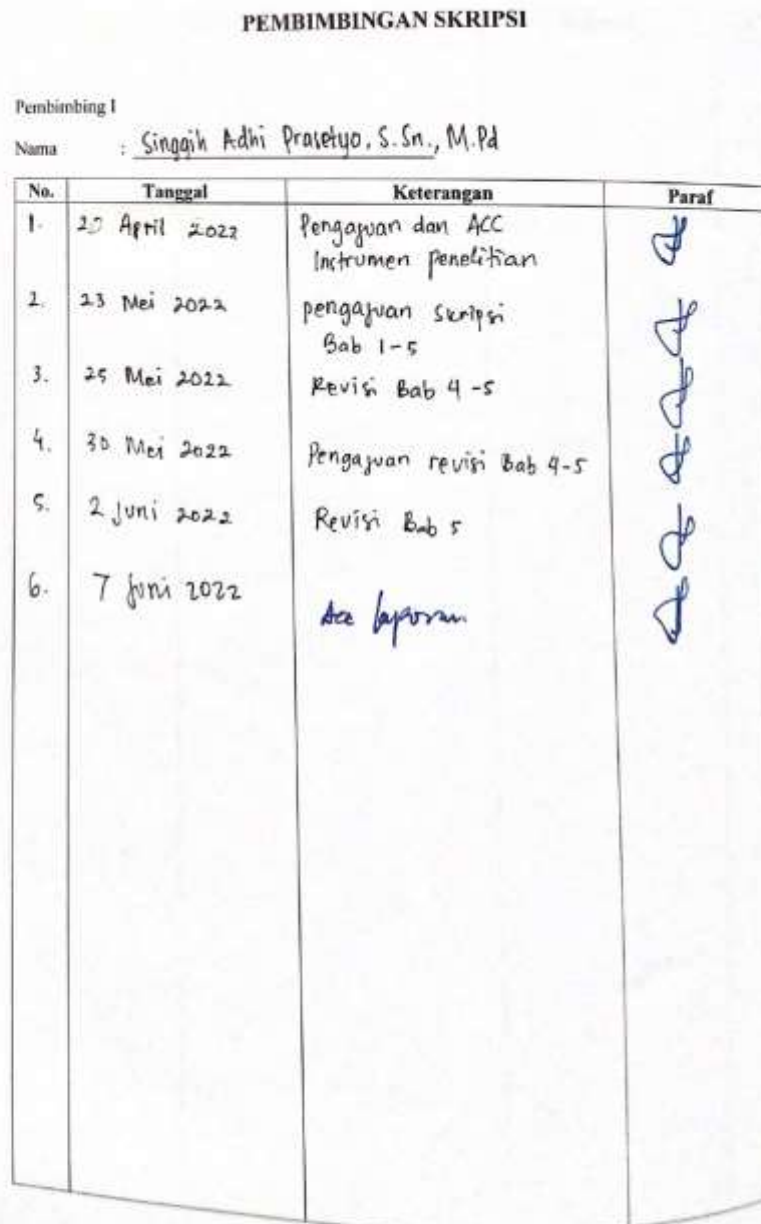 PEMBIMBINGAN SKRIPSI
Pembimbing I
Nama : Singgih Adhi Prasetyo, S.Sn., M.Pd
No. Tanggal Keterangan Paraf
1. April 2022 Pengajuan dan ACC
Instrumen Penelitian
2. 23 Mei 2022 pengajuan Skripsi
Bab 1-5
3. 25 Mei 2022 Revisi Bab 4-5
4. 30 Mei 2022 Pengajuan revisi Bab 4-5
5. 2 Juni 2022 Revisi Bab 5
6. 7 Juni 2022 Acc laporan